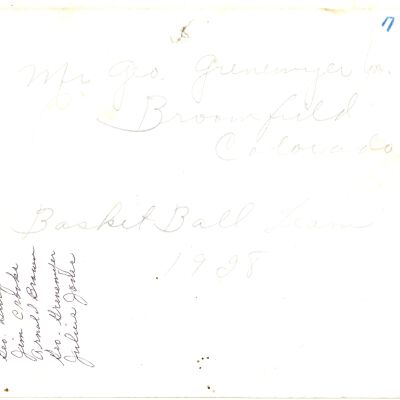 7
Mr Geo. Grenemyer
Broomfield
Colorado
Basket Ball Team
1928
Geo.
Jim Crooks
Arnold Brown
Geo. Grenemyer
Julius